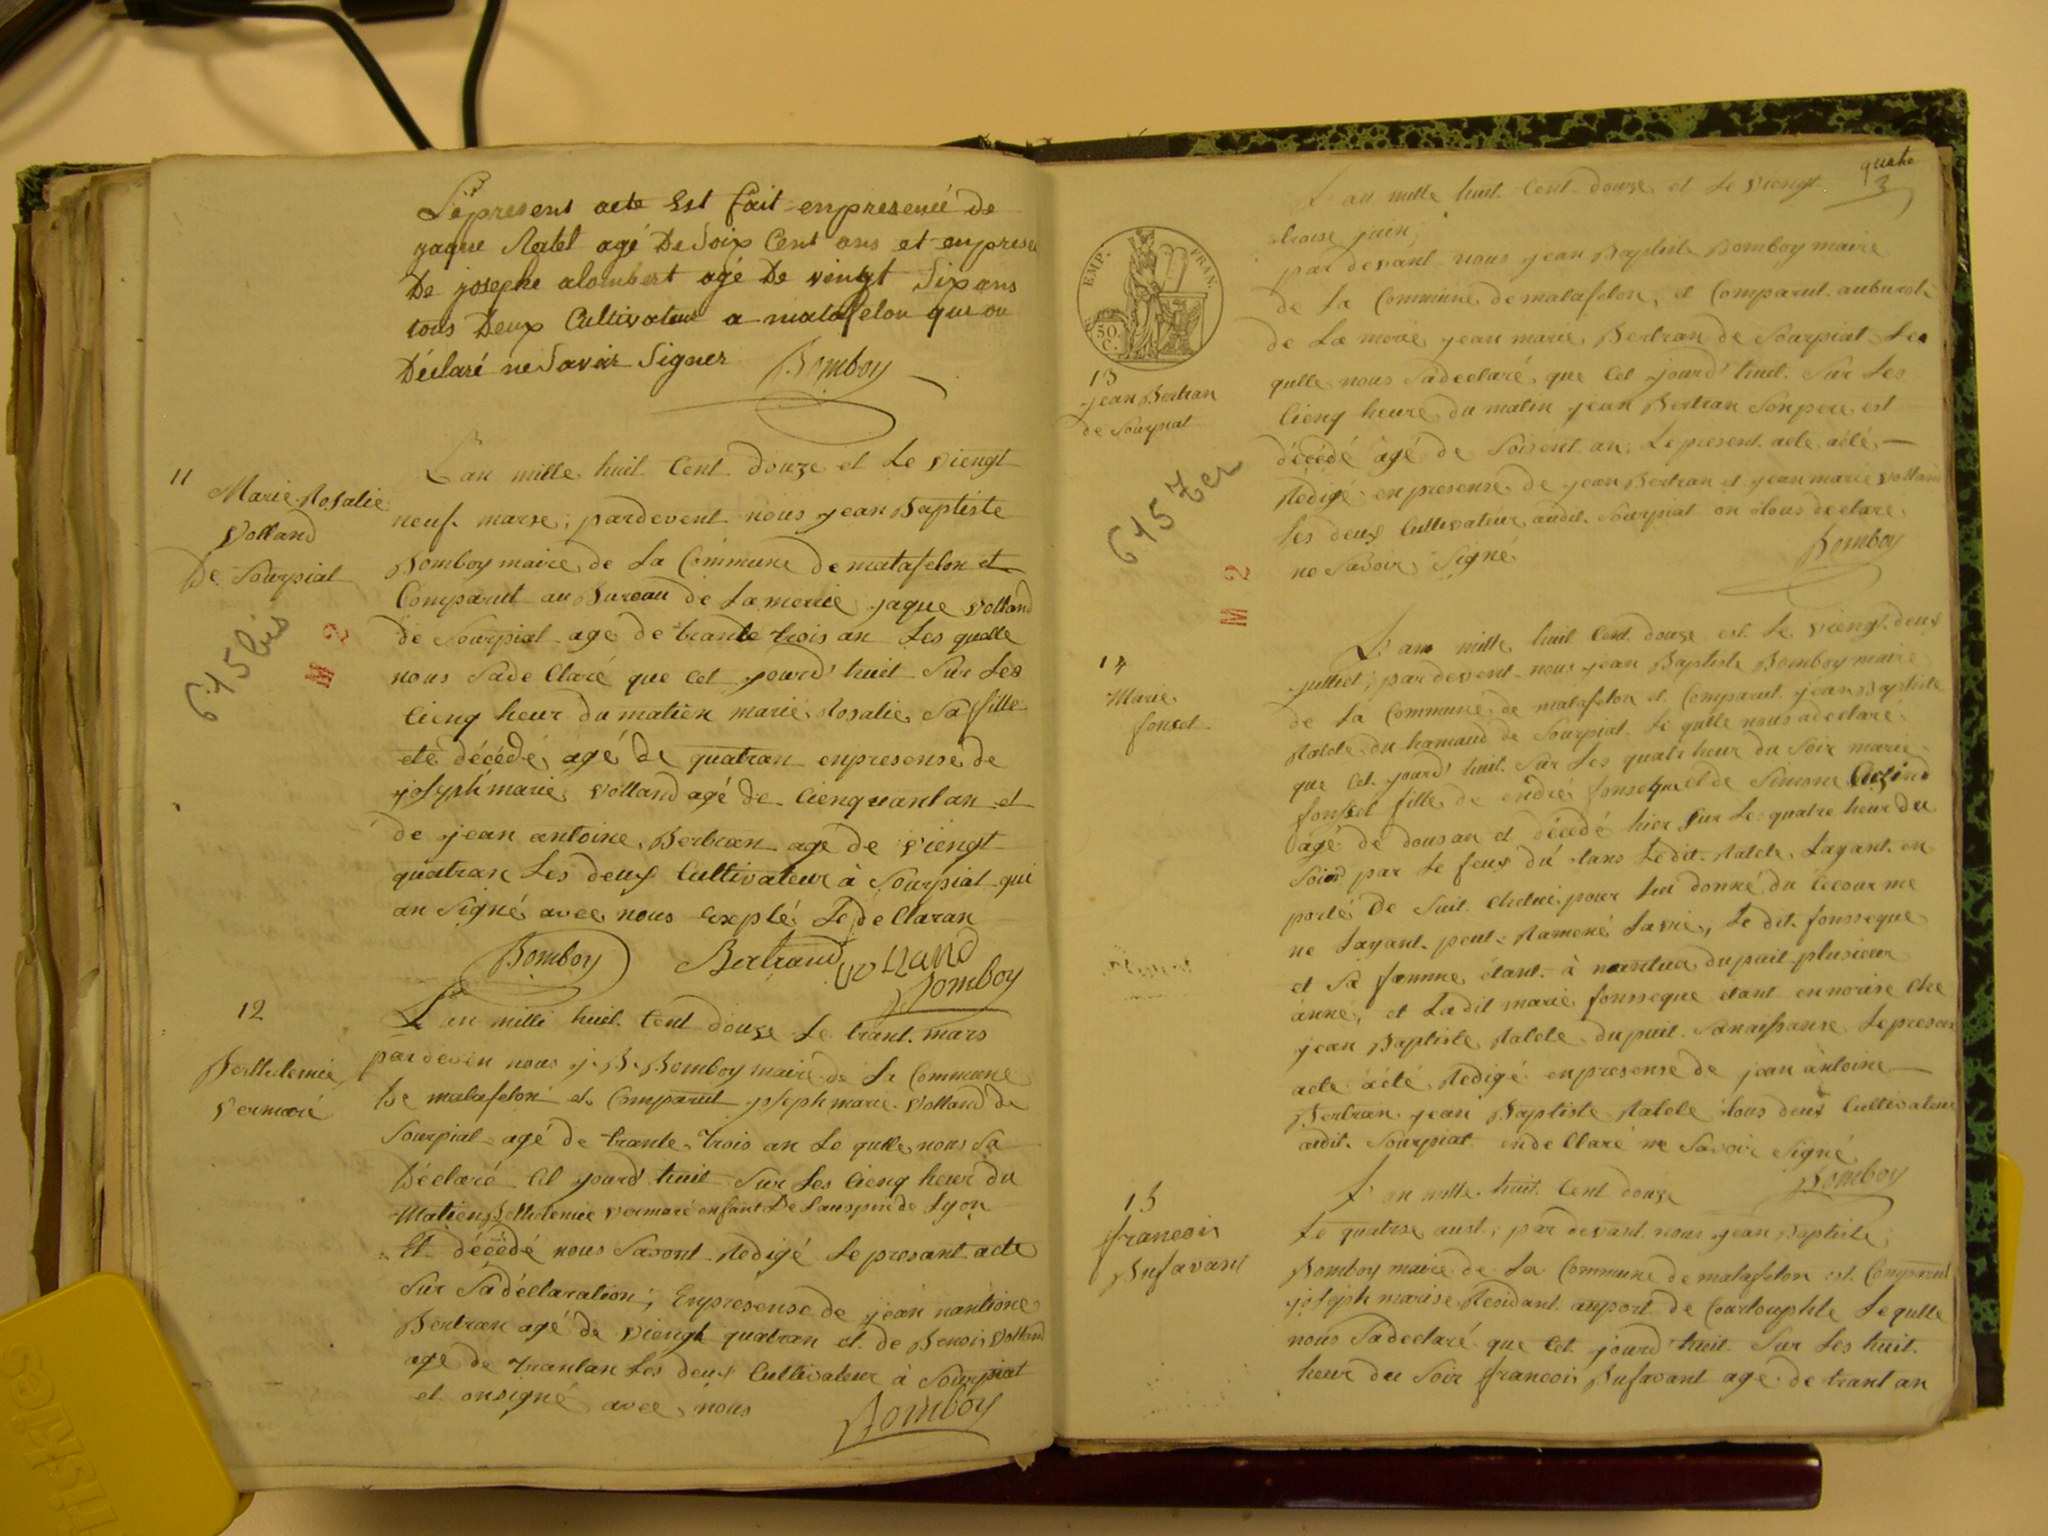 Le present acte Est fait enpresence de
jaque Ratel agé De Soix Cent ans et enprese
De josephe alombert agé De veingt Six ans
tous Deux Cultivateur a matafelon qui on
Déclaré ne Savoir Signer Bomboy
11
Marie Rosalie
Volland
De Sourpiat
615 bis
M 2
L'an mille huit Cent douze et Le viengt
neuf marse; pardevent nous jean Baptiste
Bomboy maire de La Commune de matafelon et
Comparut au Bureau de La merie jaque Volland
de Sourpiat age de trante trois an Les quelle
nous Sade Claré que Cet jourd'huit Sur Les
Cienq heur du matien marie Rosalie Sa fille
eté décédé agé de quatran enpresense de
joseph marie Volland agé de Cienquantan et
de jean antoine Bertran agé de viengt
quatran Les deux Cultivateur à Sourpiat qui
an Signé avec nous Exepté Le de Claran
Bomboy Bertrand volland
Bomboy
12
Berthelemie
Vermaré
L'an mille huit Cent douze Le trant mars
par deven nous j. B. Bomboy maire de La Commune
de matafelon et Comparut joseph marie Volland de
Sourpiat agé de trante trois an Le quelle nous Sa
Déclaré Cet jourd'huit Sur Les Cienq heur du
Matien Berthelemie Vermaré enfant De Lauspin de Lyon
Et décédé nous Savont Redigé Le presant acte
Sur Sadéclaration; Enpresense de jean nantione
Bertran agé de viengt quatran et de Benoi Volland
age de Trantan Les deux Cultivateur à Sourpiat
et onsigné avec nous Bomboy
quatre
3
EMP. FRAN.
50 C.
L'an mille huit Cent douze et Le viengt
troise juin;
par devant nous jean Baptiste Bomboy maire
de La Commune de matafelon, et Comparut auburo
de La merie jean marie Bertran de Sourpiat Le
qulle nous Sadeclaré que Cet jourd'huit Sur Les
Cienq heure du matin jean Bertran Sonpere est
décédé agé de Soisent an; Le present acte aété
Redigé enpresense de jean Bertran et jean marie Volland
Les deux Cultivateur audit Sourpiat on tous declare
ne Savoir Signé Bomboy
13
jean Bertran
de Sourpiat
615 ter
M 2
14
Marie
fonset
L'an mille huit Cent douze est Le viengt deux
juilliet; pardevent nous jean Baptiste Bomboy maire
de La Commune de matafelon et Comparut jean Baptiste
Ratele du hamaud de Sourpiat Le qulle nous adeclaré
que Cet jourd'huit Sur Les quatr heur du Soir marie
fonset fille de endré fonseque et de Simone
agé de dousan et décédé hier Sur Le quatre heur du
Soir par Le feux du tans Ledit Ratele Layant en
porté De Suit pour Lui donné du Cecour me
ne Layant peut Ramené Lavie, Le dit fonsseque
et Sa femme étant à nantua dupuit plusieur
anné, et Ladit marie fonsseque etant ennorise Che
jean Baptiste Ratele dupuit Sanaissanse Lepresen
acte aété Redigé enpresense de jean antoine
Bertran jean Baptiste Ratele tous deux Cultivateur
audit Sourpiat ende Claré ne Savoir Signé
Bomboy
15
francois
Dufavant
L'an mille huit Cent douze
Le quatrse aust; par devant nous jean Baptiste
Bomboy maire de La Commune de matafelon est Comparut
joseph marise Residant auport de Lequlle
nous Sadeclaré que Cet jourd'huit Sur Les huit
heur du Soir francois Dufavant age de trant an